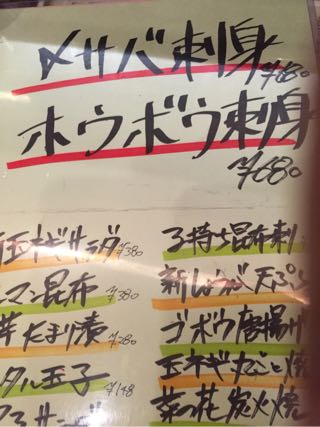 〆サバ刺身 ¥680
ホウボウ刺身
¥680
玉ネギサラダ ¥380
マン昆布 ¥380
たまり漬 ¥280
タル玉子 ¥148
子持ち昆布刺
新しょうが天ぷら
ゴボウ唐揚げ
玉ネギ丸ごと焼
菜の花炭火焼